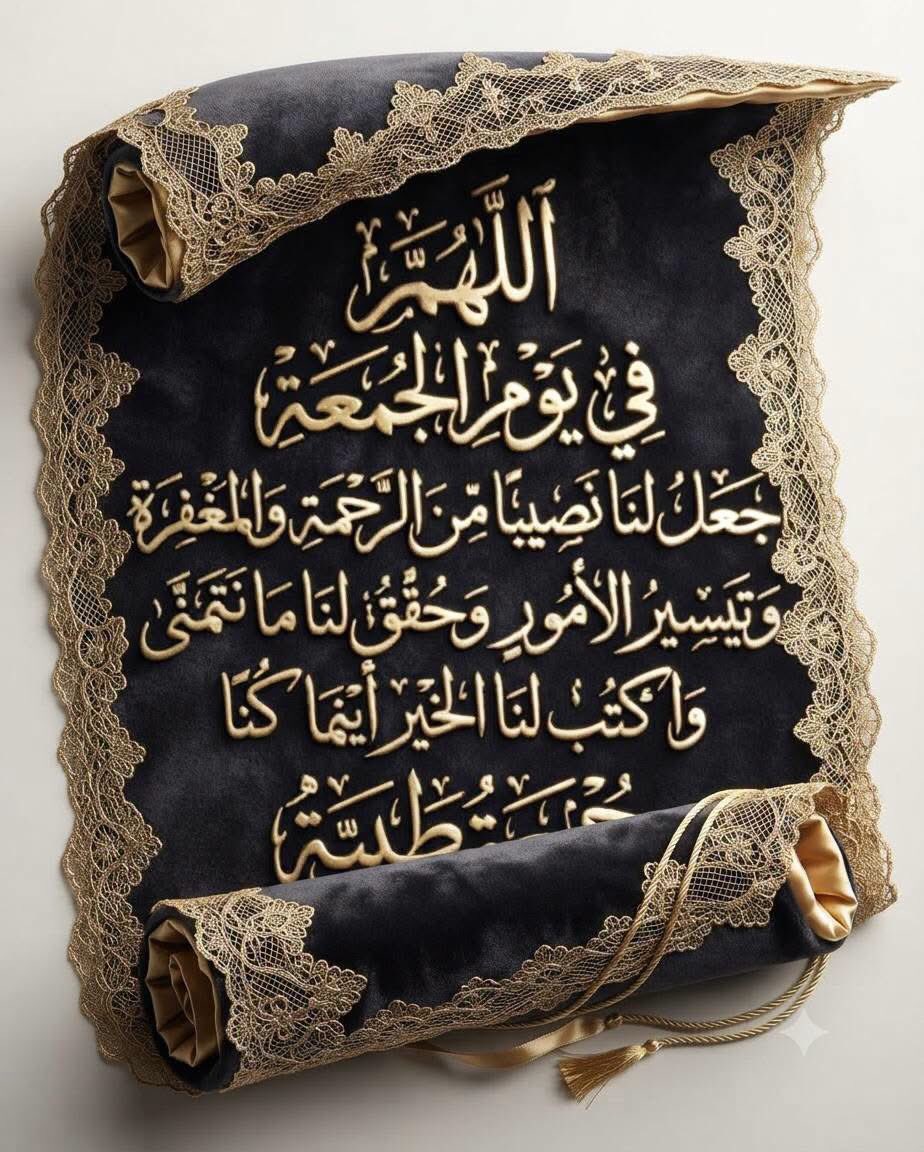 اللَّهُمَّ
فِي يَوْمِ الجُمعَةِ
جَعَلُ لنَا نَصِيبًا مِّنَ الرَّحْمَةِ وَالمَغْفِرَة
وَتَيسِيرُ الأمُورِ وَحُقَّقُ لنَا مَا نَتَمَنَّى
وَاكتُب لنَا الخَيْر أينَمَا كُنَّا
طَيبَةُ